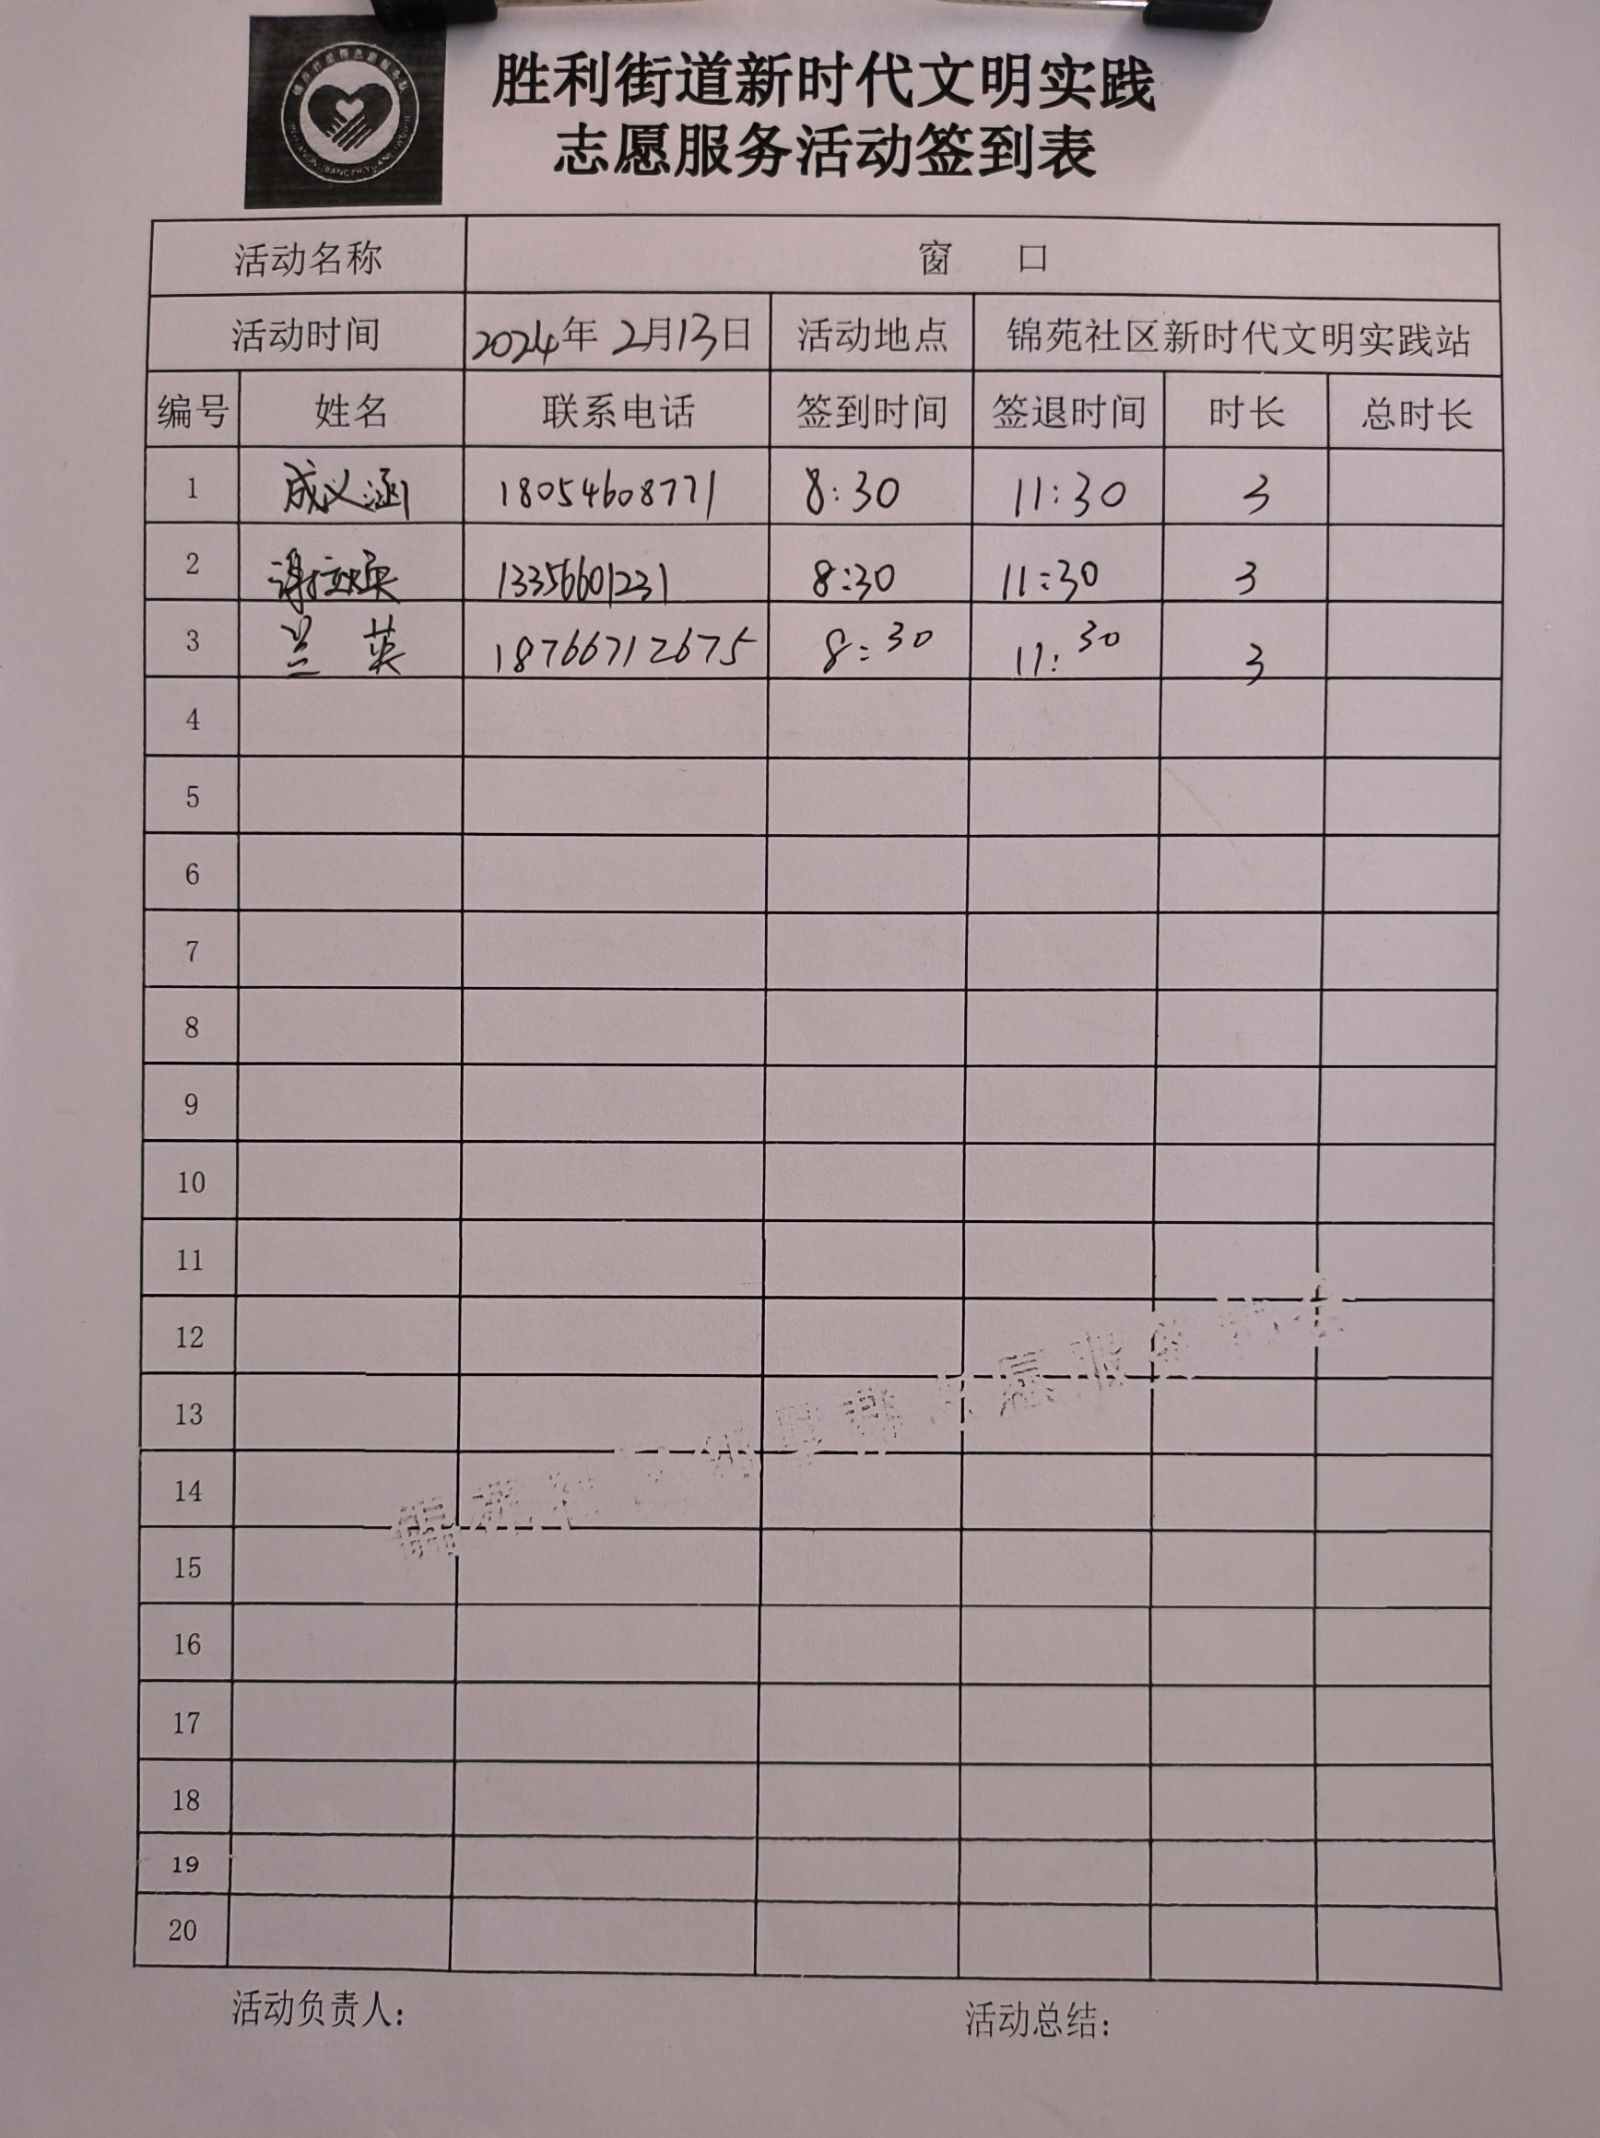 胜利街道新时代文明实践
志愿服务活动签到表
活动名称 窗 口
活动时间 2024年 2月13日 活动地点 锦苑社区新时代文明实践站
编号 姓名 联系电话 签到时间 签退时间 时长 总时长
1 成义涵 18054608771 8:30 11:30 3
2 谢 13356601231 8:30 11:30 3
3 兰 英 18766712675 8:30 11:30 3
4
5
6
7
8
9
10
11
12
13
14
15
16
17
18
19
20
活动负责人: 活动总结: